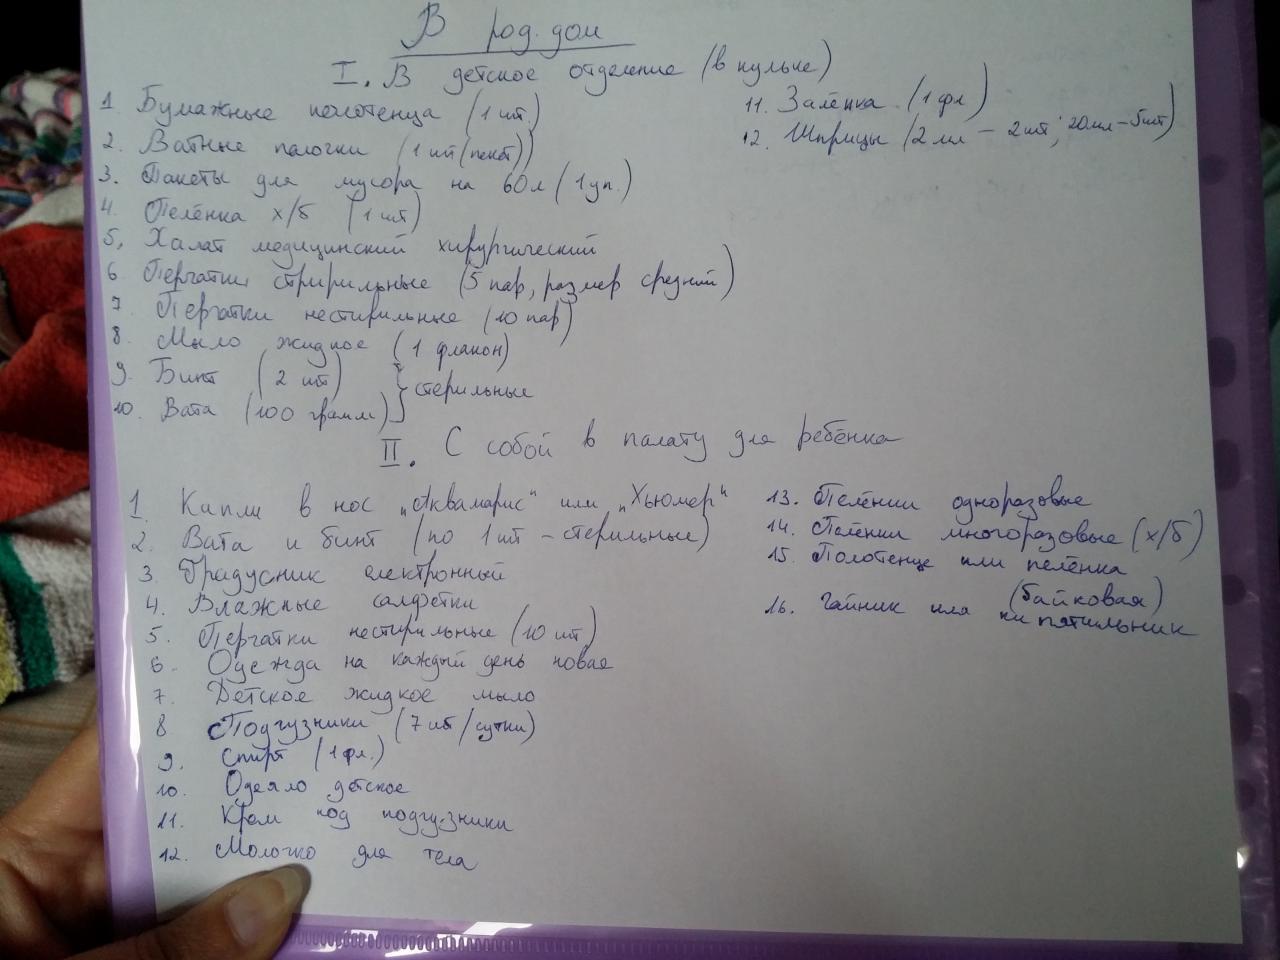 В род. дом
I. В детское отделение (в кульке)
1 Бумажные полотенца (1 шт.)
2. Ватные палочки (1 шт (пакет))
3. Пакеты для мусора на 60 л (1 уп.)
4. Пелёнка х/б (1 шт)
5, Халат медицинский хирургический
6 Перчатки стририльные (5 пар, размер средний)
7 Перчатки нестирильные (10 пар)
8. Мыло жидкое (1 флакон)
9. Бинт (2 шт) } стерильные
10. Вата (100 грамм)
11. Залёнка (1 фл)
12. Шприцы (2 мл – 2 шт; 20 мл – 5 шт)
II. С собой в палату для ребёнка
1. Капли в нос „Аквамарис" или „Хьюмер"
2. Вата и бинт (по 1 шт – стерильные)
3 Градусник електронный
4. Влажные салфетки
5. Перчатки нестирильные (10 шт)
6. Одежда на каждый день новая
7. Детское жидкое мыло
8 Подгузники (7 шт/сутки)
9. Спирт (1 фл.)
10. Одеяло детское
11. Крем под подгузники
12. Молочко для тела
13. Пелёнки одноразовые
14. Пелёнки многоразовые (х/б)
15. Полотенце или пелёнка
(байковая)
16. Чайник или кипятильник